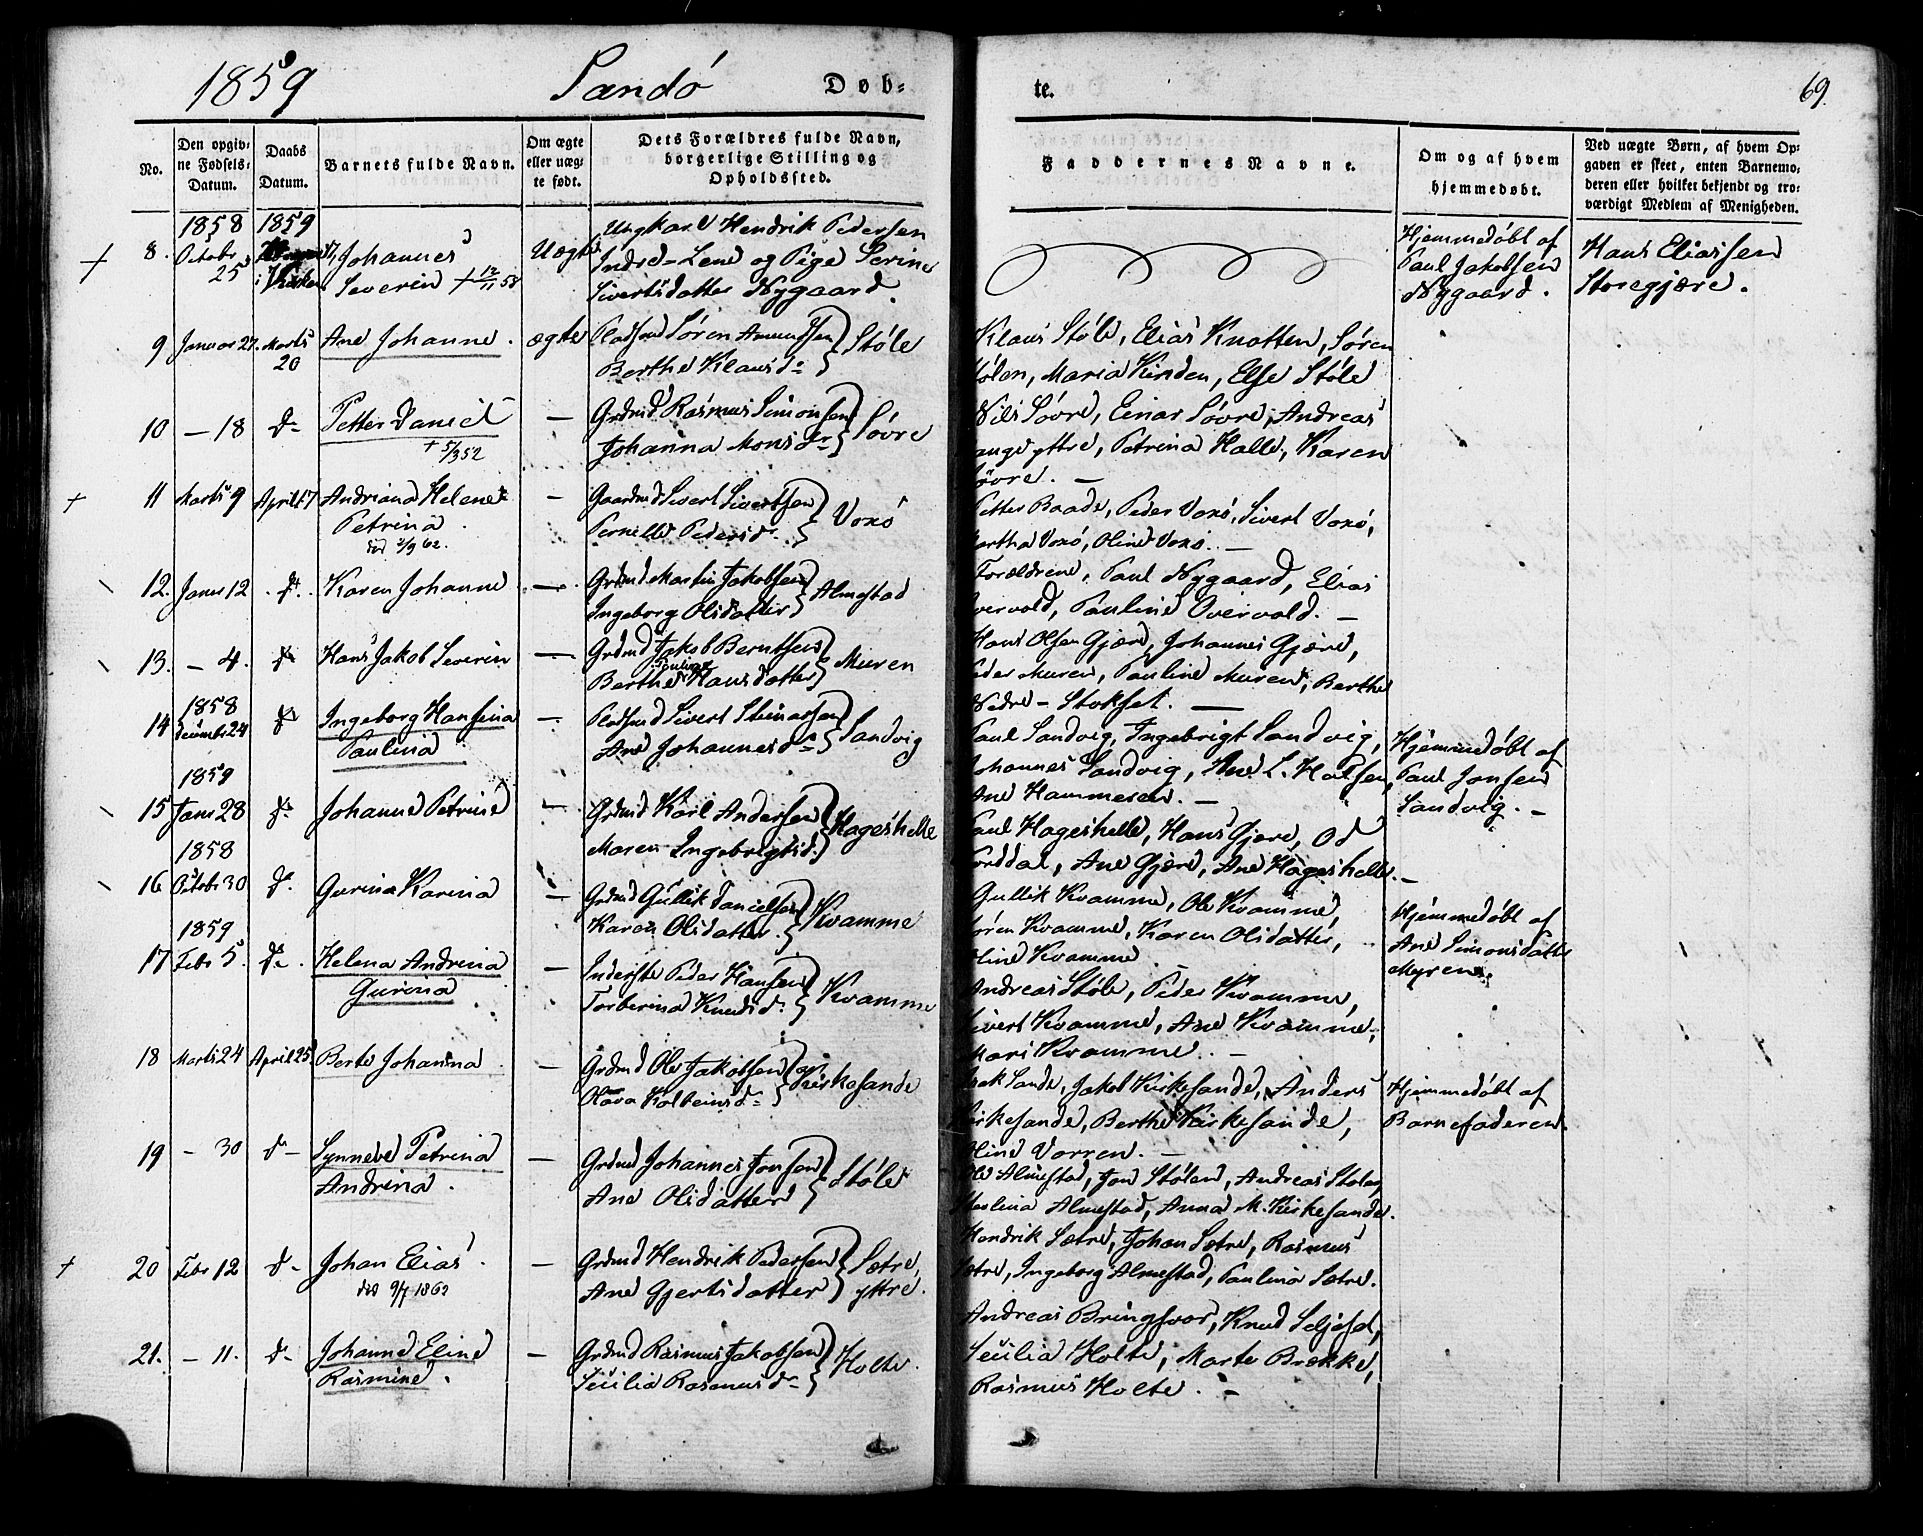 1859 Sandö Døb-
te. 69.
No.
Den opgiv-
ne Fødsels-
Datum.
Daabs
Datum.
Barnets fulde Navn.
Om ægte
eller uæg-
te født.
Dets Forældres fulde Navn,
borgerlige Stilling og
Opholdssted.
Faddernes Navne.
Om og af hvem
hjemmedøbt.
Ved uægte Børn, af hvem Op-
gaven er skeet, enten Barnemo-
deren eller hvilket bekjendt og tro-
værdigt Medlem af Menigheden.
1858 1859
8. Octobr
25 i Kirken
Johannes
Severin + 12/11 58
Uægte
Ungkarl Hendrik Pedersen
Indre-Lene og Pige Serine
Sivertsdatter Nygaard.
Hjemmedöbt af
Paul Jakobsen
Nygaard.
Hans Eliassen
Storegjære.
9 Januar 27. Marts
20
Ane Johanne.
ægte
Pladsmd Sören Amundsen
Berthe Klausd:
Stöle
Klaus Stöle, Elias Knotten, Sören
tölen, Maria Kinden, Else Stöle
10 — 18 d-
Petter Daniel
+ 5/3 52
—
Grdmd Rasmus Simonsen
Johanna Monsdr
Sövre
Nils Sövre, Einar Sövre, Andreas
ange yttre, Petrina Halle, Karen
övre. —
11 Marts 9 April 17
Andriana Helene
Petrina.
död 2/9 62.
—
Gaardmd Sivert Sivertsen
Pernille Pedersd.
Voxö
Petter Baade, Peder Voxö, Sivert Voxö,
artha Voxö, Oline Voxö. —
12. Januar 12 d-.
Karen Johanne
—
Grdmd Martin Jakobsen
Ingeborg Olsdatter
Almestad
Forældrene, Paul Nygaard, Elias
vervold, Pauline Overvold. —
13. — 4. d-
Hans Jakob Severin
—
Grdmd Jakob Berntsen
Berthe Pauline Hansdatter
Muren
Hans Olsen Gjære, Johannes Gjære,
eder Muren, Pauline Muren, Berthe
Nedre-Stokset. —
1858
14 December 24 d-
Ingeborg Hansina
Paulina
—
Pladsmd Sivert Steinarsen
Ane Johannesdr
Sandvig
Paul Sandvig, Ingebrigt Sandvig,
Johannes Sandvig, Ane L. Halsen,
Ane Hammeren. —
Hjemmedöbt af
Paul Jonsen
Sandvig. —
1859
15 Janr 28 d-
Johanne Petrine
—
Grdmd Karl Andersen
Maren Ingebrigtsd.
Hageskelle
Paul Hageskelle, Hans Gjære, Od
orddal, Ane Gjære, Ane Hageskelle. —
1858
16 Octobr 30 d-
Gurina Karina
—
Grdmd Gullik Danielsen
Karen Olsdatter.
Kvamme
Gullik Kvamme, Ole Kvamme,
ören Kvamme, Karen Olsdatter,
line Kvamme.
Hjemmedöbt af
Ane Simonsdatter
Myren.
1859
17 Febr 5. d-.
Helena Andrina
Gurina
—
Inderste Peder Hansen
Torberina Knudsd.
Kvamme
Andreas Stöle, Peder Kvamme,
ivert Kvamme, Ane Kvamme,
Mari Kvamme. —
18 Marts 24 April 25
Berte Johanna.
—
Grdmd Ole Jakobsen
Olava Kolbeinsd-
Kirkesande
sak Sande, Jakob Kirkesande, Anders
irkesande, Berthe Kirkesande,
line Vorren. —
Hjemmedöbt af
Barnefaderen
19 — 30 d-
Synneve Petrina
Andrina.
—
Grdmd Johannes Jonsen
Ane Olsdatter
Stöle
Ole Almestad, Jon Stölen, Andreas Stolen,
Almestad, Anna M. Kirkesande.
20 Febr 12 d-
Johan Elias.
död 9/7 1862
—
Grdmd Hendrik Pedersen
Ane Gjertsdatter
Sætre,
yttre.
Hendrik Sætre, Johan Sætre, Rasmus
ætre, Ingeborg Almestad, Paulina Sætre.
21. — 11. d-
Johanne Eline
Rasmine.
—
Grdmd Rasmus Jakobsen
Secilia Rasmusd-
Holte.
Andreas Bringsvor, Knud Seljeset,
Secilia Holte, Marte Brække,
Rasmus Holte. —